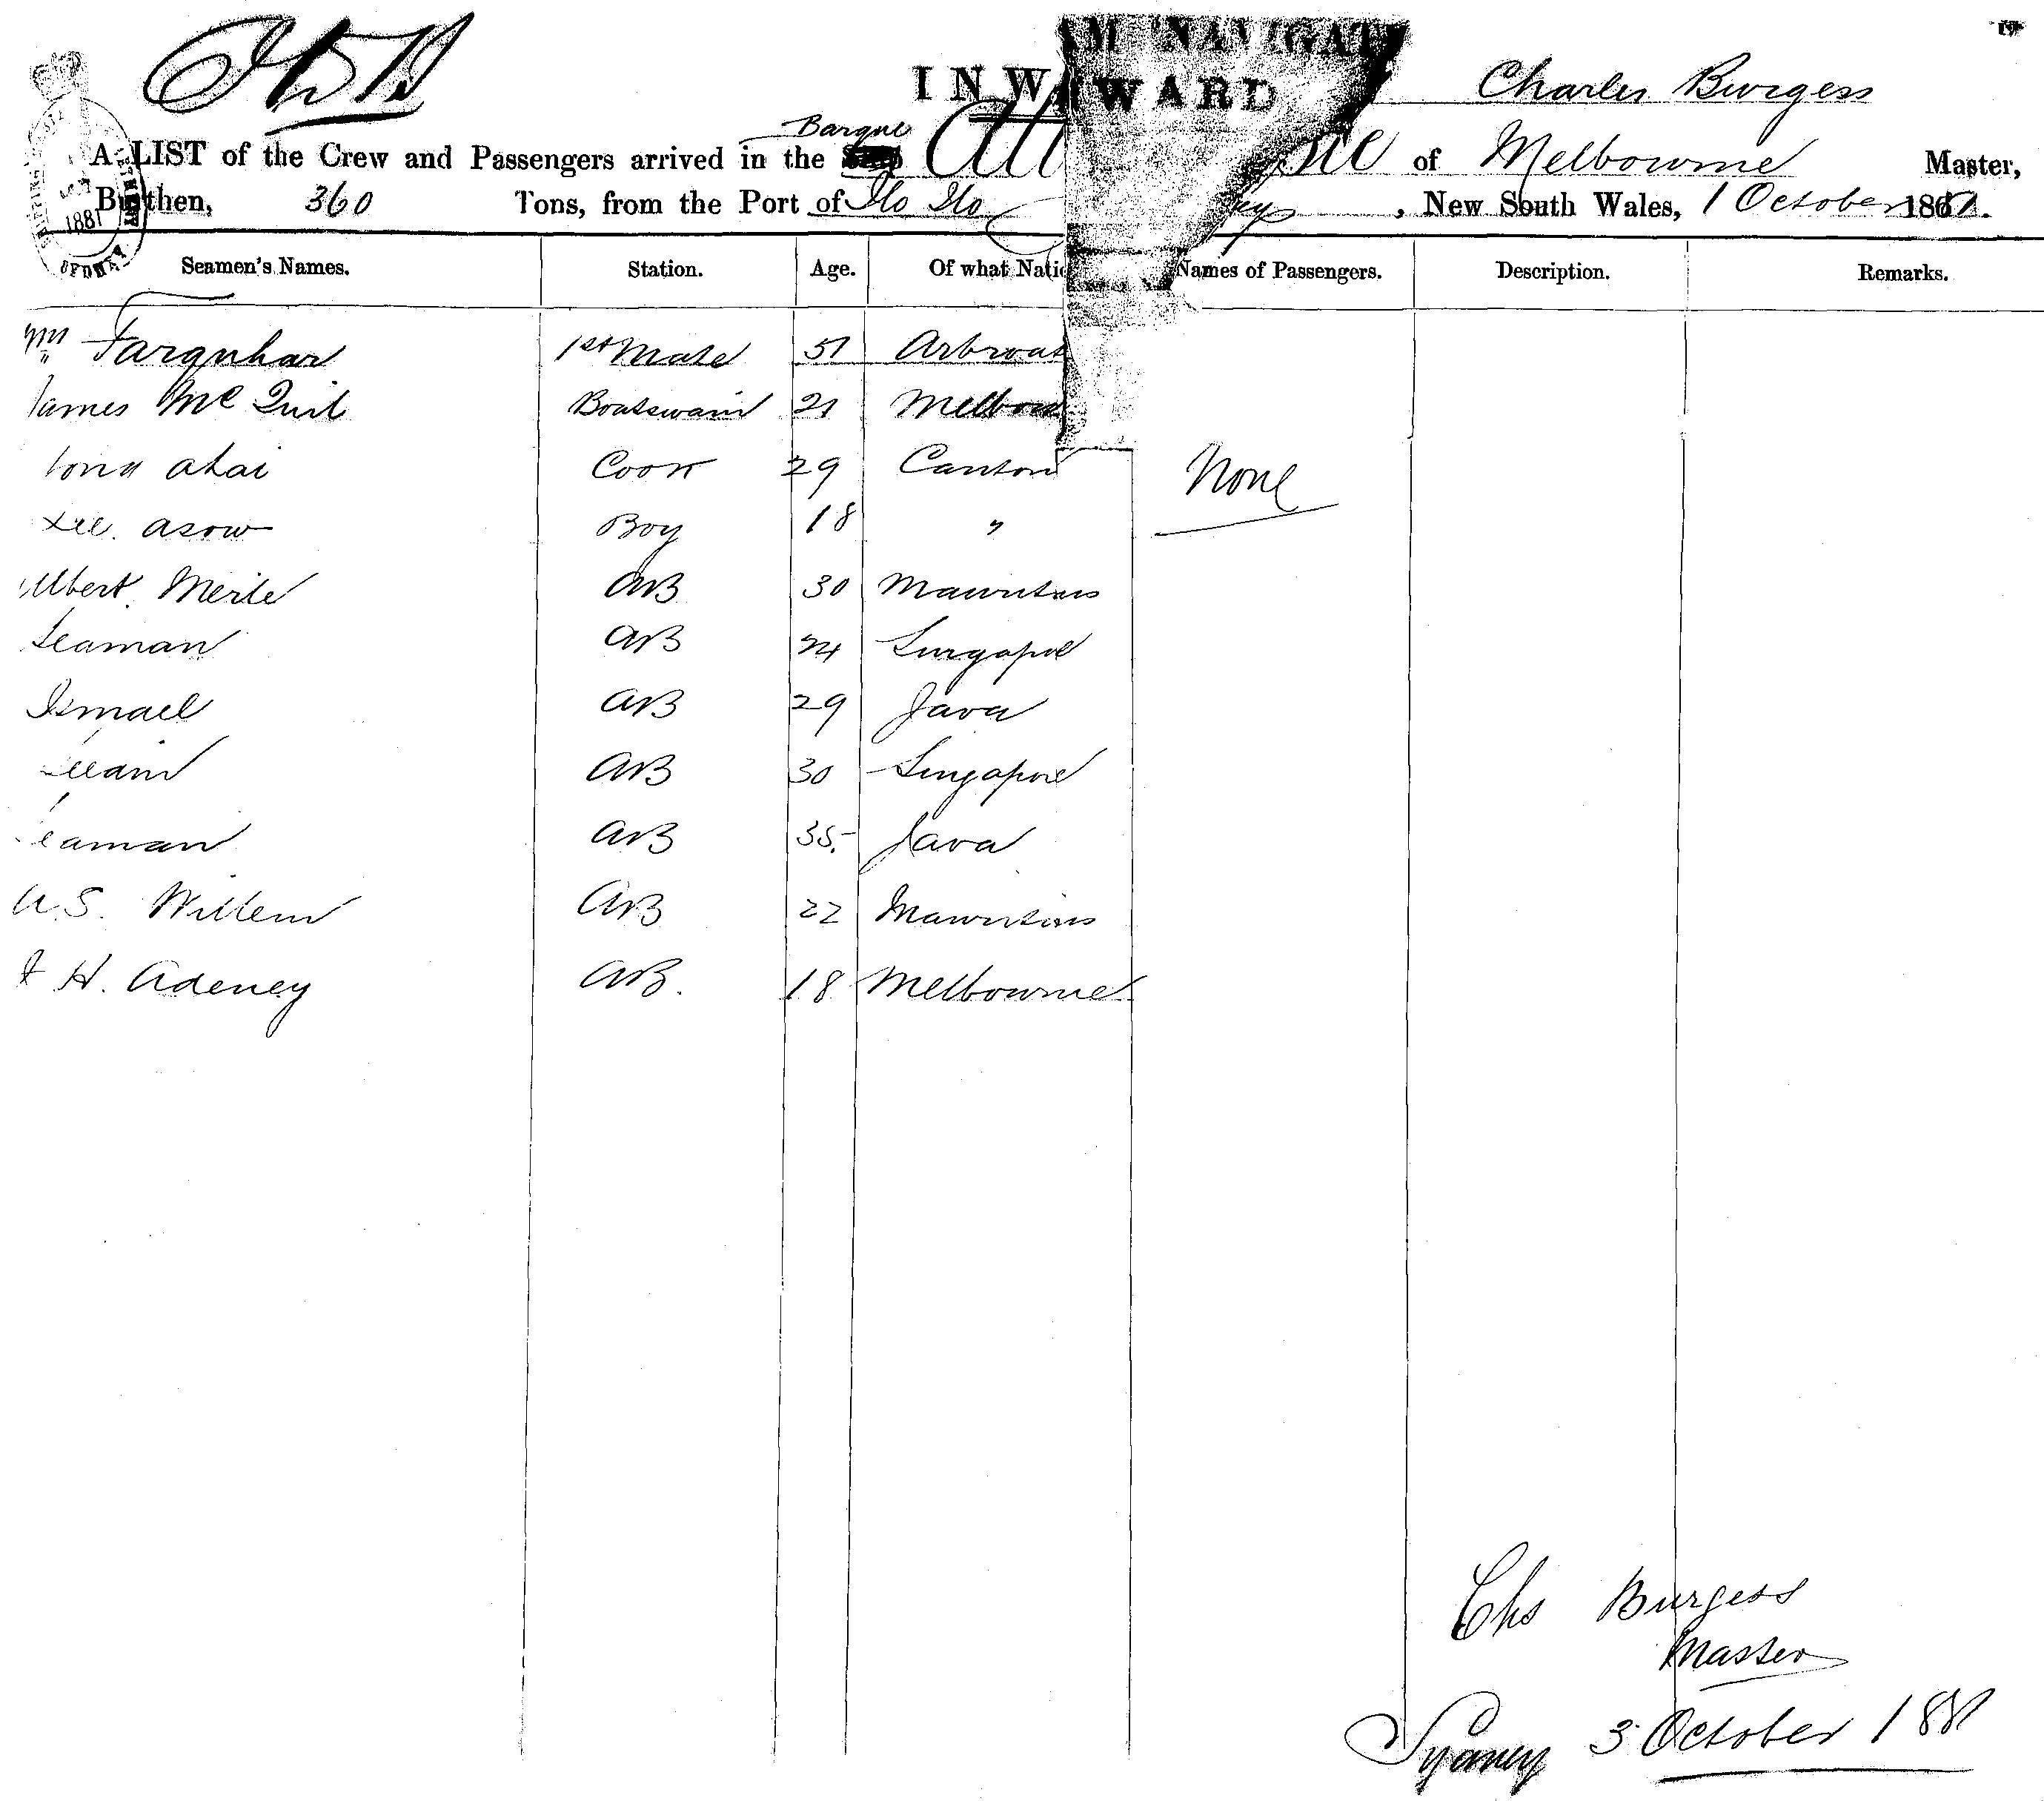 AM NAVIGAT
INWA WARD
Charles Burgess
Barque
A LIST of the Crew and Passengers arrived in the of Melbourne Master,
Burthen, 360 Tons, from the Port of Ilo Ilo , New South Wales, 1 October 1881.
1881
SYDNEY
Seamen's Names. Station. Age. Of what Natio Names of Passengers. Description. Remarks.
Wm Farquhar 1st Mate 51 Arbroat
James McQuil Boatswain 21 Melbour
ahai Cook 29 Canton None
Lee asow Boy 18 "
Albert Merle AB 30 Mauritius
Seaman AB 24 Singapore
Ismael AB 29 Java
AB 30 Singapore
eaman AB 35. Java
W.S. Willem AB 22 Mauritius
H. Adeney AB. 18 Melbourne
Chs Burgess
Master
Sydney 3 October 1881